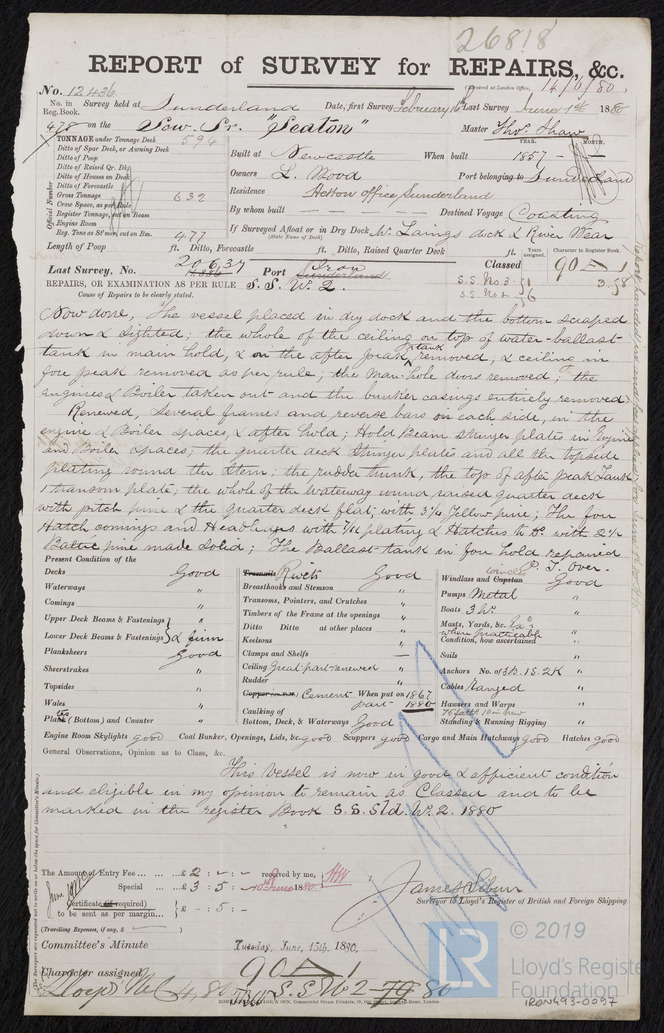 26818
REPORT of SURVEY for REPAIRS, &c.
No. 12436
(Received at London Office, 14/6/80
No. in Reg. Book. Survey held at Sunderland Date, first Survey February 16th Last Survey June 1st 1880
478 on the Scw. Sr. "Seaton" Master Thos. Shaw
TONNAGE under Tonnage Deck 594
Ditto of Spar Deck, or Awning Deck
Ditto of Poop
Ditto of Raised Qr. Dk.
Ditto of Houses on Deck
Ditto of Forecastle
Gross Tonnage 632
Crew Space, as per Rule
Register Tonnage, cut on Beam
Engine Room
Reg. Tons as St'mer, cut on Bm. 477
Official Number
YEAR. MONTH.
Built at Newcastle When built 1857 - -
Owners L. Wood Port belonging to Sunderland
Residence Hetton Office Sunderland
By whom built — — Destined Voyage Coasting
If Surveyed Afloat or in Dry Dock Mr. Laings dock & River Wear
(State Name of Dock)
Length of Poop ft. Ditto, Forecastle ft. Ditto, Raised Quarter Deck ft.
Years assigned. Character in Register Book.
Last Survey, No. 20637 Port Iron Sunderland Classed 90 A 1
3.78
REPAIRS, OR EXAMINATION AS PER RULE S. S. No. 2.
S.S. No 3-71
S.S. No 1-76
Cause of Repairs to be clearly stated.
Now done, The vessel placed in dry dock and the bottom scraped
down & sighted; the whole of the ceiling on top of water-ballast-
tank in main hold, & on the after peak tank removed; & ceiling in
fore peak removed as per rule; the man-hole doors removed; the
engines & Boiler taken out and the bunker casings entirely removed.
Renewed, Several frames and reverse bars on each side, in the
engine & Boiler spaces, & after hold; Hold Beam stringer plates in Engine
and Boiler spaces; the quarter deck stringer plates and all the topside
plating round the Stern; the rudder trunk, the top of after peak tank
1 transom plate; the whole of the waterway round raised quarter deck
with pitch pine & the quarter deck flat with 3¼ Yellow pine; The four
Hatch comings and Headledges with 7/16 plating & Hatches to Do. with 2½
Baltic pine made solid; The Ballast-tank in fore hold repaired
P. T. Over.
Present Condition of the
Decks Good
Waterways "
Comings "
Upper Deck Beams & Fastenings "
Lower Deck Beams & Fastenings
Planksheers Good
Sheerstrakes "
Topsides "
Wales "
Plating (Bottom) and Counter "
Treenails Rivets Good
Breasthooks and Stemson "
Transoms, Pointers, and Crutches "
Timbers of the Frame at the openings "
Ditto Ditto at other places "
Keelsons "
Clamps and Shelfs —
Ceiling Great part renewed "
Rudder "
Copper (or Y.M.) Cement When put on 1867
part - 1880
Caulking of
Bottom, Deck, & Waterways Good
Windlass and Capstan winches Good
Pumps Metal "
Boats 3 No. "
Masts, Yards, &c.
Condition, how ascertained when practicable "
Sails "
Anchors No. of 3B. 1S. 2K "
Cables Ranged "
Hawsers and Warps "
Standing & Running Rigging "
Engine Room Skylights good Coal Bunker, Openings, Lids, &c. good Scuppers good Cargo and Main Hatchways good Hatches good
General Observations, Opinion as to Class, &c.
This Vessel is now in good & efficient condition
and eligible in my opinion to remain as Classed and to be
marked in the register Book S.S. Sld. No. 2. 1880
The Amount of Entry Fee ... £ 2 : - : - received by me, HW
Special ... £ 3 : 5 : - 10th June 1880
Certificate (if required)
to be sent as per margin... £ - : 5 : -
(Travelling Expenses, if any, £ )
James Sibun
Surveyor to Lloyd's Register of British and Foreign Shipping.
Committee's Minute Tuesday, June, 15th, 1880.
Character assigned 90 A 1
Lloyd's MC 4,80 S.S. No 2 - 79 80
LR
© 2019
Lloyd's Register
Foundation
IRON493-0097